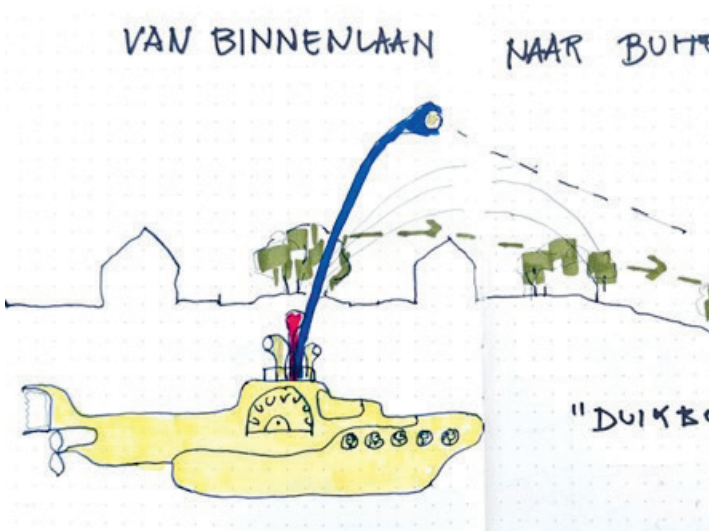 VAN BINNENLAAN NAAR BUITE
"DUIKBO